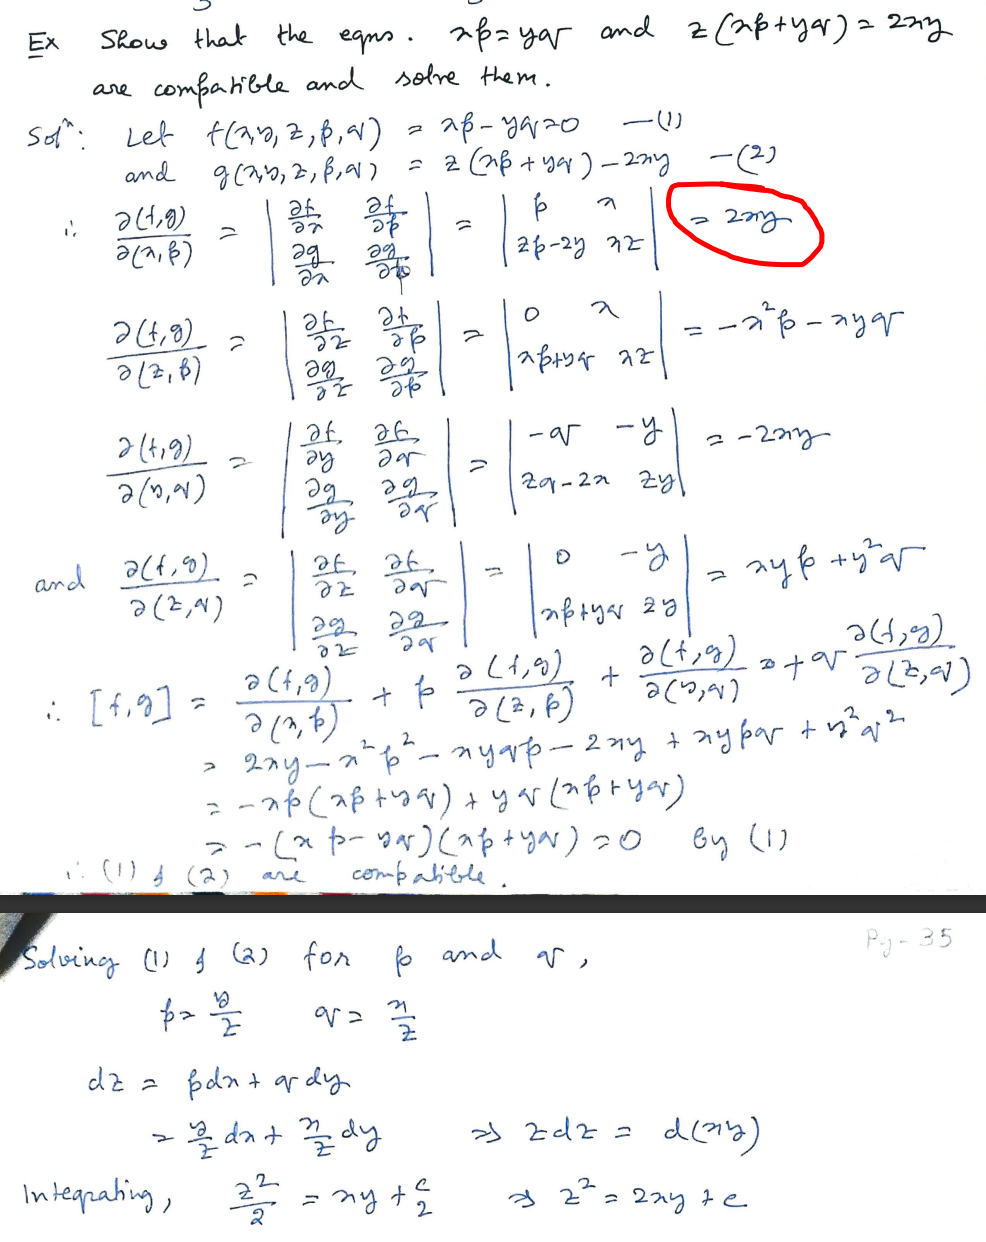 Ex Show that the eqns. xp = yq and z(xp+yq) = 2xy
are compatible and solve them.
Solⁿ: Let f(x,y,z,p,q) = xp - yq = 0 —(1)
and g(x,y,z,p,q) = z(xp+yq) - 2xy —(2)
∴ ∂(f,g)/∂(x,p) = | ∂f/∂x ∂f/∂p ; ∂g/∂x ∂g/∂p | = | p x ; zp-2y xz | = 2xy
∂(f,g)/∂(z,p) = | ∂f/∂z ∂f/∂p ; ∂g/∂z ∂g/∂p | = | 0 x ; xp+yq xz | = -x²p - xyq
∂(f,g)/∂(y,q) = | ∂f/∂y ∂f/∂q ; ∂g/∂y ∂g/∂q | = | -q -y ; zq-2x zy | = -2xy
and ∂(f,g)/∂(z,q) = | ∂f/∂z ∂f/∂q ; ∂g/∂z ∂g/∂q | = | 0 -y ; xp+yq zy | = xyp + y²q
∴ [f,g] = ∂(f,g)/∂(x,p) + p ∂(f,g)/∂(z,p) + ∂(f,g)/∂(y,q) + q ∂(f,g)/∂(z,q)
= 2xy - x²p² - xyqp - 2xy + xypq + y²q²
= -xp(xp+yq) + yq(xp+yq)
= -(xp-yq)(xp+yq) = 0 by (1)
∴ (1) & (2) are compatible.
Pg-35
Solving (1) & (2) for p and q,
p = y/z q = x/z
dz = pdx + qdy
= y/z dx + x/z dy ⇒ zdz = d(xy)
Integrating, z²/2 = xy + c/2 ⇒ z² = 2xy + c